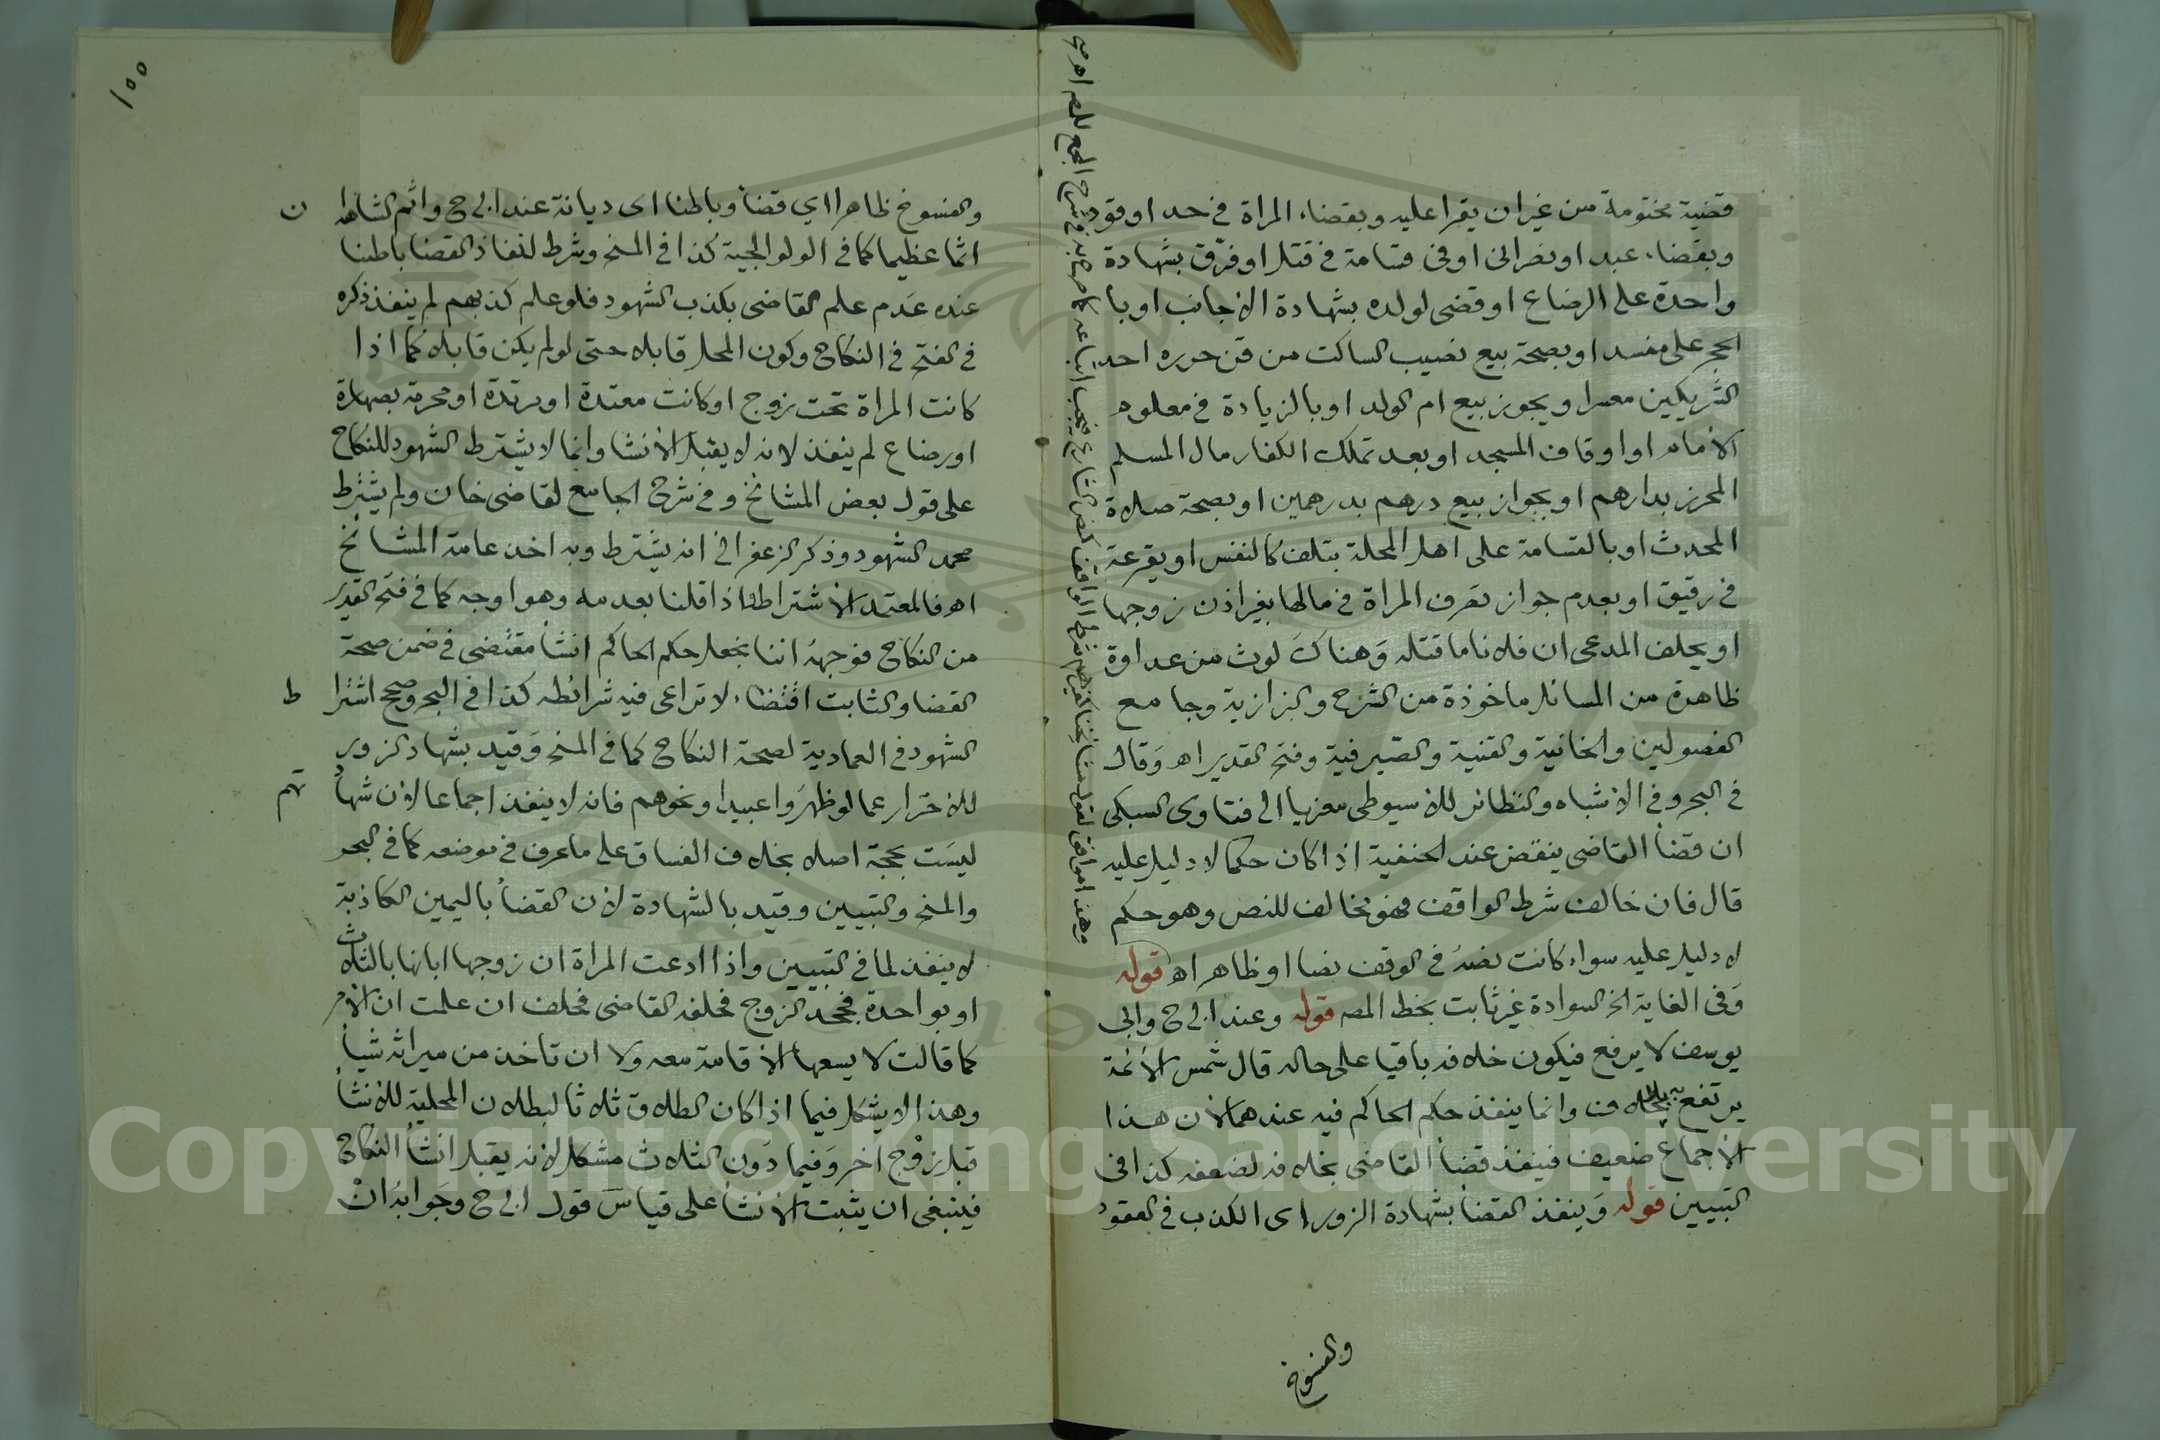 قضية مختومة من غير ان يقرا عليه وبقضاء المراة في حد او قود
وبقضاء عبد او نصراني او في قسامة في قتل او فرق بشهادة
واحدة على الرضاع او قضى لولده بشهادة الاجانب او با
الحجر على مفسد او بصحة بيع نصيب الساكت من قن حرره احد
الشريكين معسرا ويجوز بيع ام الولد او بالزيادة في معلوم
الامام او اوقاف المسجد او بعد تملك الكفار مال المسلم
المحرز بدارهم او بجواز بيع درهم بدرهمين او بصحة صلاة
المحدث او بالقسامة على اهل المحلة بتلف كالنفس او بقرعة
في رقيق او بعدم جواز تصرف المراة في مالها بغير اذن زوجها
او بحلف المدعى ان فلانا ما قتله وهناك لوث من عداوة
ظاهرة من المسائل ماخوذة من الشرح والبزازية وجامع
الفصولين والخانية والقنية والصيرفية وفتح القدير اهـ وقال
في البحر وفي الاشباه والنظائر للاسيوطي معزيا الى فتاوى السبكى
ان قضا القاضى ينقض عند الحنفية اذا كان حكما لا دليل عليه
قال فان خالف شرط الواقف فهو مخالف للنص وهو حكم
لا دليل عليه سواء كانت نصه في الوقف نصا او ظاهرا اهـ قوله
وفى الغاية الخ السوادة غير ثابت بخط المص قوله وعند ابي ح وابى
يوسف لا يرفع فيكون خلافه باقيا على حاله قال شمس الائمة
يرتفع به الخلاف وانما ينفذ حكم الحاكم فيه عندهما لان هذا
الاجماع ضعيف فينفذ قضا القاضى بخلافه لضعفه كذا فى
التبيين قوله وينفذ القضا بشهادة الزور اى الكذب في العقود
والفسوخ
وهذا موافق لقول مشايخنا كغيرهم شرط الواقف كنص الشارع فيجب اتباعه كما صرح به في شرح المجمع للمص اهـ
١٥٥
والفسوخ ظاهرا اي قضا وباطنا اى ديانة عند ابي ح واثم الشاهد
ن
اثما عظيما كما في الولوالجية كذا في المنح وشرط لنفاذ القضا باطنا
عنده عدم علم القاضى بكذب الشهود فلو علم كذبهم لم ينفذ ذكره
في الفتح في النكاح وكون المحل قابلا حتى لو لم يكن قابلا كما اذا
كانت المراة تحت زوج او كانت معتدة او مرتدة او محرمة بصهارة
او رضاع لم ينفذ لانه لا يقبل الانشا وانما لا يشترط الشهود للنكاح
على قول بعض المشائخ وفي شرح الجامع لقاضى خان ولم يشترط
محمد الشهود وذكر الزعفراني انه يشترط وبه اخذ عامة المشائخ
اهـ فالمعتمد الاشتراط اذا قلنا بعدمه وهو اوجه كما في فتح القدير
من النكاح فوجهه اننا نجعل حكم الحاكم انشا مقتضى في ضمن صحة
القضا والثابت اقتضاء لا تراعى فيه شرائطه كذا في البحر وصحح اشترا
ط
الشهود في العمادية لصحة النكاح كما في المنح وقيد بشهاد الزور
للاحترار عما لو ظهروا عبيدا ونحوهم فانه لا ينفذ اجماعا لان شهاد
تهم
ليست بحجة اصلا بخلاف الفساق على ما عرف في موضعه كما في البحر
والمنح والتبيين وقيد بالشهادة لان القضا باليمين الكاذبة
لا ينفذ لما في التبيين واذا ادعت المراة ان زوجها ابانها بالثلاث
او بواحدة فجحد الزوج فحلفه القاضى فحلف ان علمت ان الامر
كما قالت لا يسعها الاقامة معه ولا ان تاخذ من ميراثه شيأ
وهذا لا يشكل فيما اذا كان الطلاق ثلاثا لبطلان المحلية للانشا
قبل زوج اخر وفيما دون الثلاث مشكل لانه يقبل انشا النكاح
فينبغى ان يثبت الانشا على قياس قول ابي ح وجوابه ان